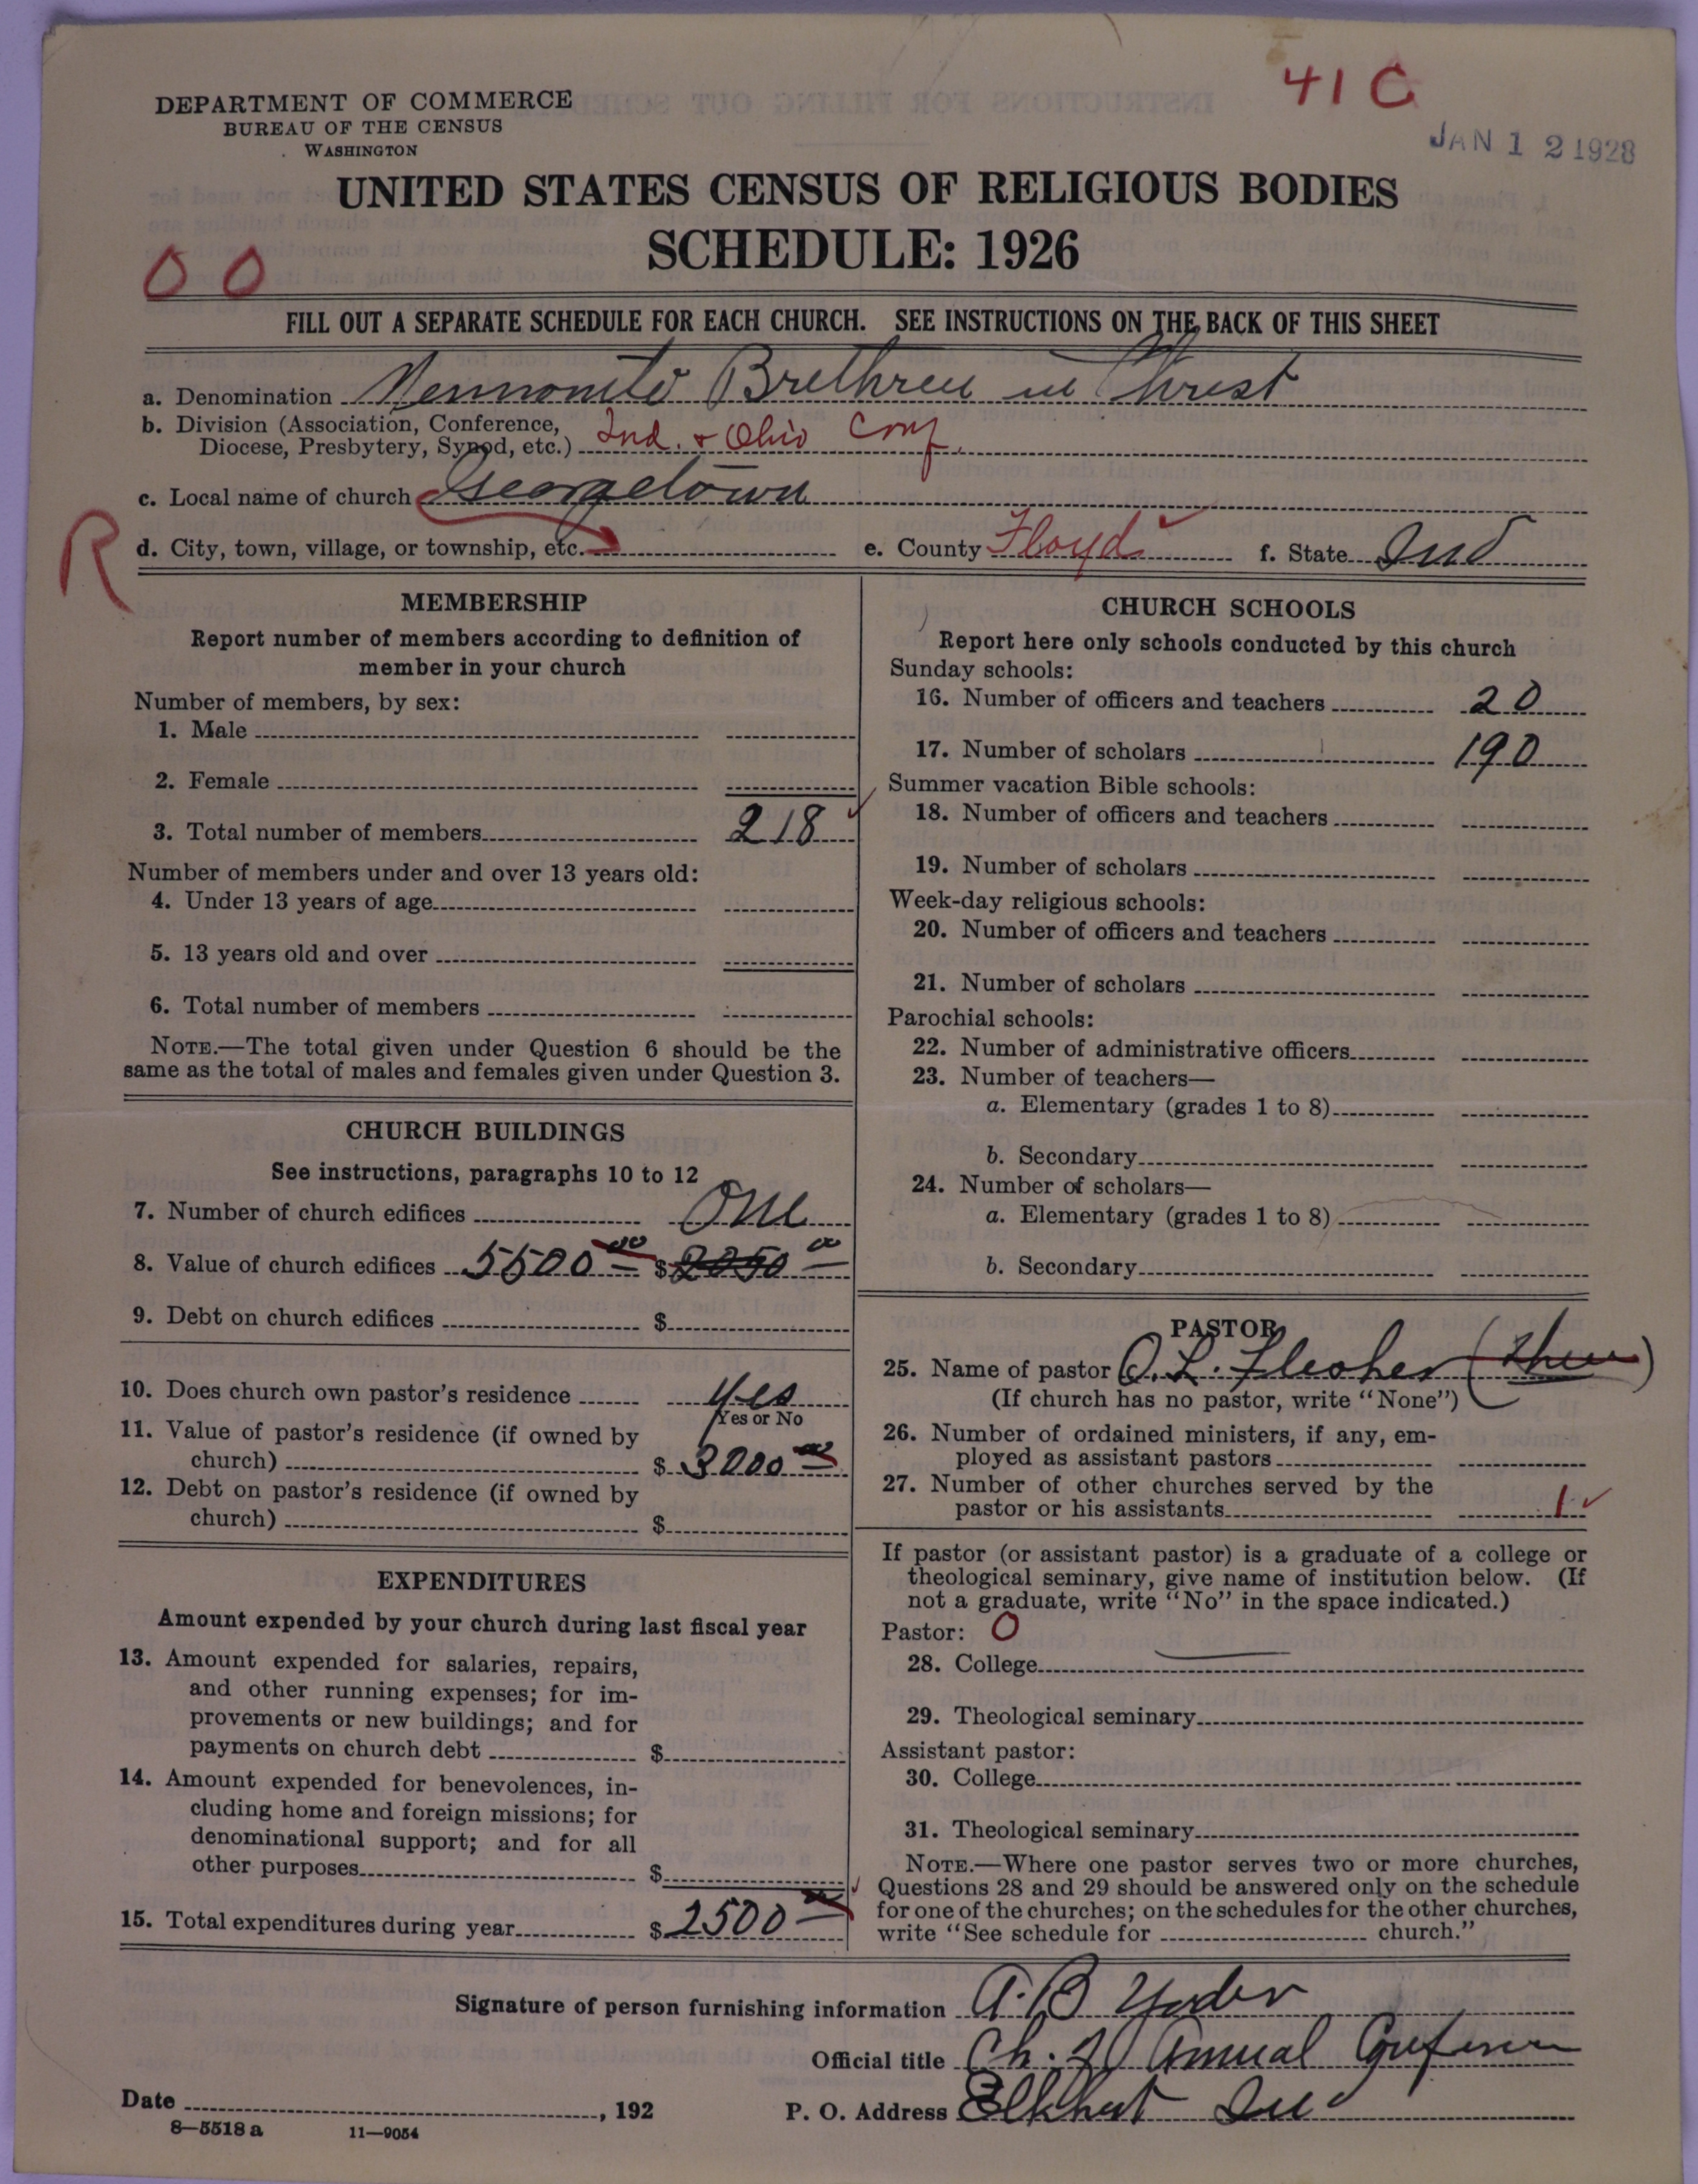 41 C
DEPARTMENT OF COMMERCE
BUREAU OF THE CENSUS
WASHINGTON
JAN 12 1928
UNITED STATES CENSUS OF RELIGIOUS BODIES
SCHEDULE: 1926
00
FILL OUT A SEPARATE SCHEDULE FOR EACH CHURCH. SEE INSTRUCTIONS ON THE BACK OF THIS SHEET
a. Denomination Mennonite Brethren in Christ
b. Division (Association, Conference,
Diocese, Presbytery, Synod, etc.) Ind. & Ohio Conf.
c. Local name of church Georgetown
R
d. City, town, village, or township, etc. e. County Floyd f. State Ind
MEMBERSHIP
Report number of members according to definition of
member in your church
Number of members, by sex:
1. Male
2. Female
3. Total number of members 218
Number of members under and over 13 years old:
4. Under 13 years of age
5. 13 years old and over
6. Total number of members
NOTE.—The total given under Question 6 should be the
same as the total of males and females given under Question 3.
CHURCH BUILDINGS
See instructions, paragraphs 10 to 12
7. Number of church edifices One
8. Value of church edifices 5500 00 $ 00
9. Debt on church edifices $
10. Does church own pastor's residence Yes
Yes or No
11. Value of pastor's residence (if owned by
church) $ 3000 00
12. Debt on pastor's residence (if owned by
church) $
EXPENDITURES
Amount expended by your church during last fiscal year
13. Amount expended for salaries, repairs,
and other running expenses; for im-
provements or new buildings; and for
payments on church debt $
14. Amount expended for benevolences, in-
cluding home and foreign missions; for
denominational support; and for all
other purposes $
15. Total expenditures during year $ 2500
CHURCH SCHOOLS
Report here only schools conducted by this church
Sunday schools:
16. Number of officers and teachers 20
17. Number of scholars 190
Summer vacation Bible schools:
18. Number of officers and teachers
19. Number of scholars
Week-day religious schools:
20. Number of officers and teachers
21. Number of scholars
Parochial schools:
22. Number of administrative officers
23. Number of teachers—
a. Elementary (grades 1 to 8)
b. Secondary
24. Number of scholars—
a. Elementary (grades 1 to 8)
b. Secondary
PASTOR
25. Name of pastor O. L. (then)
(If church has no pastor, write "None")
26. Number of ordained ministers, if any, em-
ployed as assistant pastors
27. Number of other churches served by the
pastor or his assistants 1
If pastor (or assistant pastor) is a graduate of a college or
theological seminary, give name of institution below. (If
not a graduate, write "No" in the space indicated.)
Pastor: O
28. College
29. Theological seminary
Assistant pastor:
30. College
31. Theological seminary
NOTE.—Where one pastor serves two or more churches,
Questions 28 and 29 should be answered only on the schedule
for one of the churches; on the schedules for the other churches,
write "See schedule for church."
Signature of person furnishing information A. B Yoder
Official title Ch. of Annual Conference
Date , 192 P. O. Address Elkhart Ind
8—5518 a 11—9054